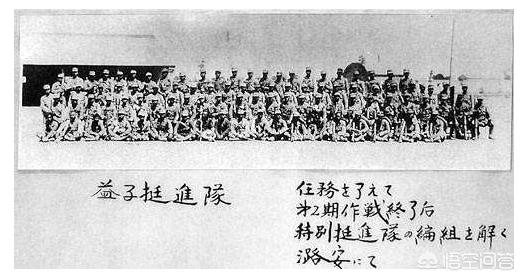 益子挺進隊
任務を了えて
为2期作戦終了后
特別挺進隊の編組を解く
潞安にて
悟空问答